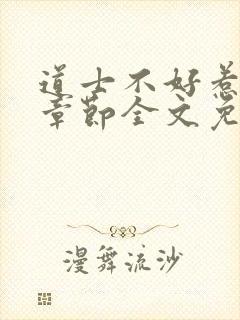 道士不好惹
章节全文免
漫舞流沙